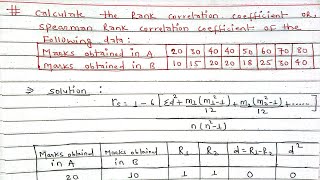 # Calculate the Rank correlation coefficient or,
spearman Rank correlation coefficient of the
Following data:
Marks obtained in A 20 30 40 40 50 60 70 80
Marks obtained in B 10 15 20 20 18 25 30 40
⇒ solution:
r = 1 - 6 [Σd² + m₁(m₁²-1)/12 + m₂(m₂²-1)/12 + .....]
n(n²-1)
Marks obtained in A Marks obtained in B R₁ R₂ d=R₁-R₂ d²
20 10 1 1 0 0